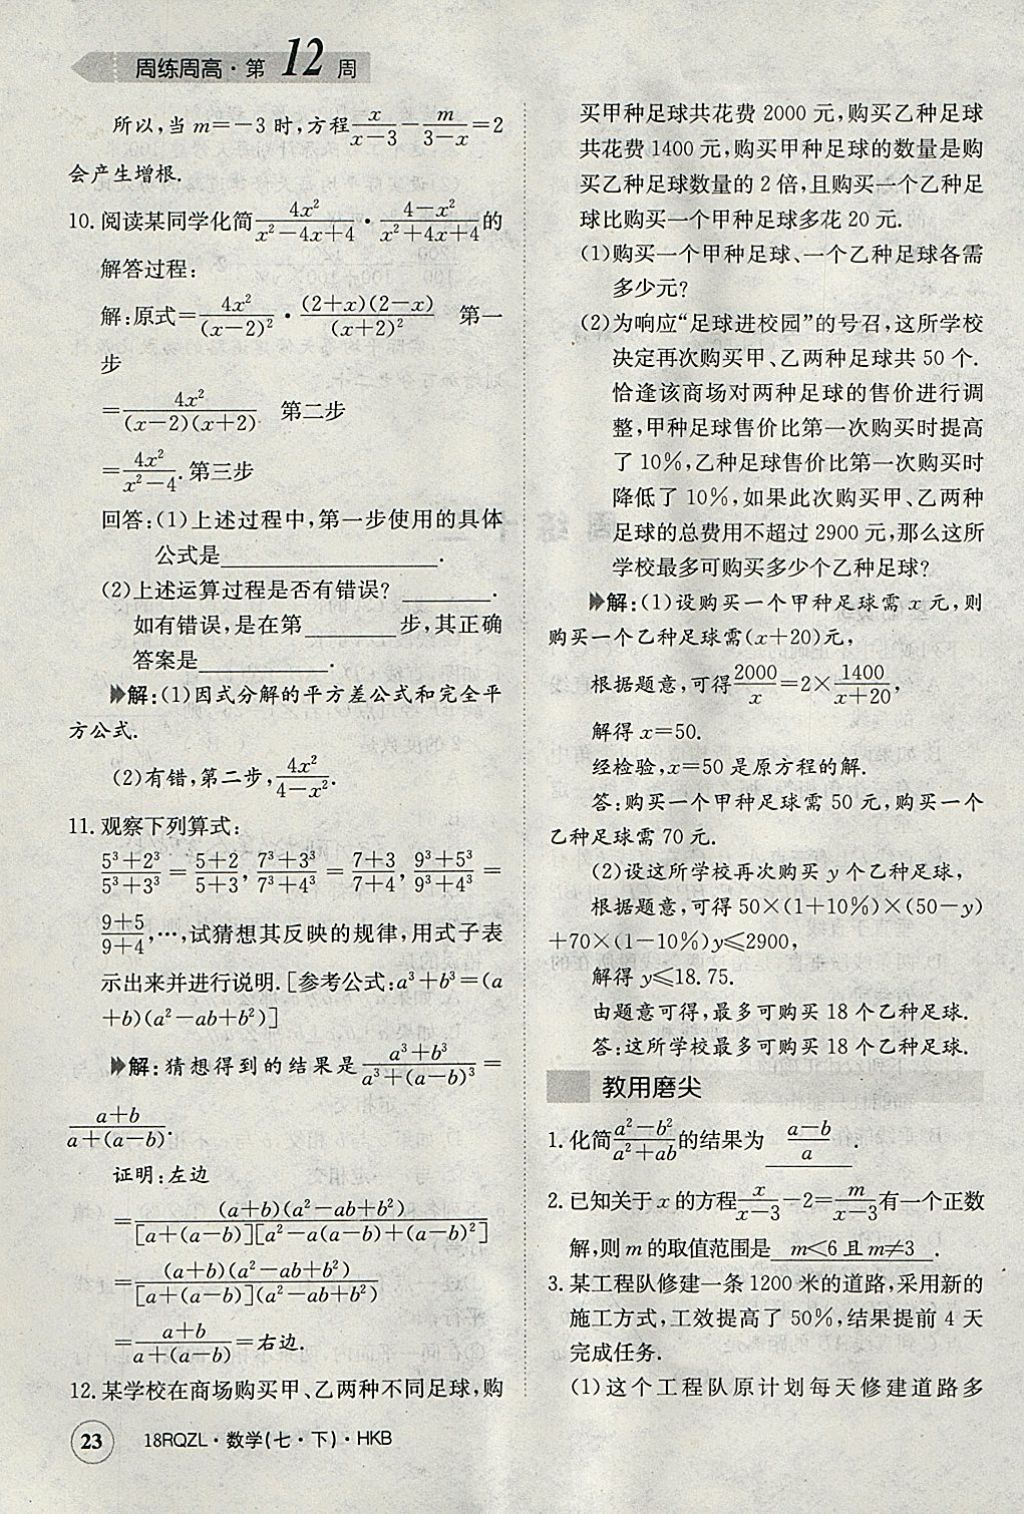 周练周高·第12周
所以,当 m=-3 时,方程 x/(x-3) - m/(3-x) = 2
会产生增根.
10. 阅读某同学化简 4x²/(x²-4x+4) · (4-x²)/(x²+4x+4) 的
解答过程:
解:原式= 4x²/(x-2)² · (2+x)(2-x)/(x+2)² 第一
步
= 4x²/((x-2)(x+2)) 第二步
= 4x²/(x²-4). 第三步
回答:(1)上述过程中,第一步使用的具体
公式是________.
(2)上述运算过程是否有错误? ________.
如有错误,是在第________步,其正确
答案是________.
解:(1)因式分解的平方差公式和完全平
方公式.
(2)有错,第二步, 4x²/(4-x²).
11. 观察下列算式:
(5³+2³)/(5³+3³) = (5+2)/(5+3), (7³+3³)/(7³+4³) = (7+3)/(7+4), (9³+5³)/(9³+4³) =
(9+5)/(9+4),…,试猜想其反映的规律,用式子表
示出来并进行说明.[参考公式:a³+b³=(a
+b)(a²-ab+b²)]
解:猜想得到的结果是 (a³+b³)/(a³+(a-b)³) =
(a+b)/(a+(a-b)).
证明:左边
= (a+b)(a²-ab+b²)/([a+(a-b)][a²-a(a-b)+(a-b)²])
= (a+b)(a²-ab+b²)/([a+(a-b)](a²-ab+b²))
= (a+b)/(a+(a-b)) =右边.
12. 某学校在商场购买甲、乙两种不同足球,购
23 18RQZL·数学(七·下)·HKB
买甲种足球共花费 2000 元,购买乙种足球
共花费 1400 元,购买甲种足球的数量是购
买乙种足球数量的 2 倍,且购买一个乙种足
球比购买一个甲种足球多花 20 元.
(1)购买一个甲种足球、一个乙种足球各需
多少元?
(2)为响应“足球进校园”的号召,这所学校
决定再次购买甲、乙两种足球共 50 个.
恰逢该商场对两种足球的售价进行调
整,甲种足球售价比第一次购买时提高
了 10%,乙种足球售价比第一次购买时
降低了 10%,如果此次购买甲、乙两种
足球的总费用不超过 2900 元,那么这所
学校最多可购买多少个乙种足球?
解:(1)设购买一个甲种足球需 x 元,则
购买一个乙种足球需(x+20)元,
根据题意,可得 2000/x = 2× 1400/(x+20),
解得 x=50.
经检验,x=50 是原方程的解.
答:购买一个甲种足球需 50 元,购买一个
乙种足球需 70 元.
(2)设这所学校再次购买 y 个乙种足球,
根据题意,可得 50×(1+10%)×(50-y)
+70×(1-10%)y≤2900,
解得 y≤18.75.
由题意可得,最多可购买 18 个乙种足球.
答:这所学校最多可购买 18 个乙种足球.
教用磨尖
1. 化简 (a²-b²)/(a²+ab) 的结果为 (a-b)/a .
2. 已知关于 x 的方程 x/(x-3) -2= m/(x-3) 有一个正数
解,则 m 的取值范围是 m<6 且 m≠3 .
3. 某工程队修建一条 1200 米的道路,采用新的
施工方式,工效提高了 50%,结果提前 4 天
完成任务.
(1)这个工程队原计划每天修建道路多